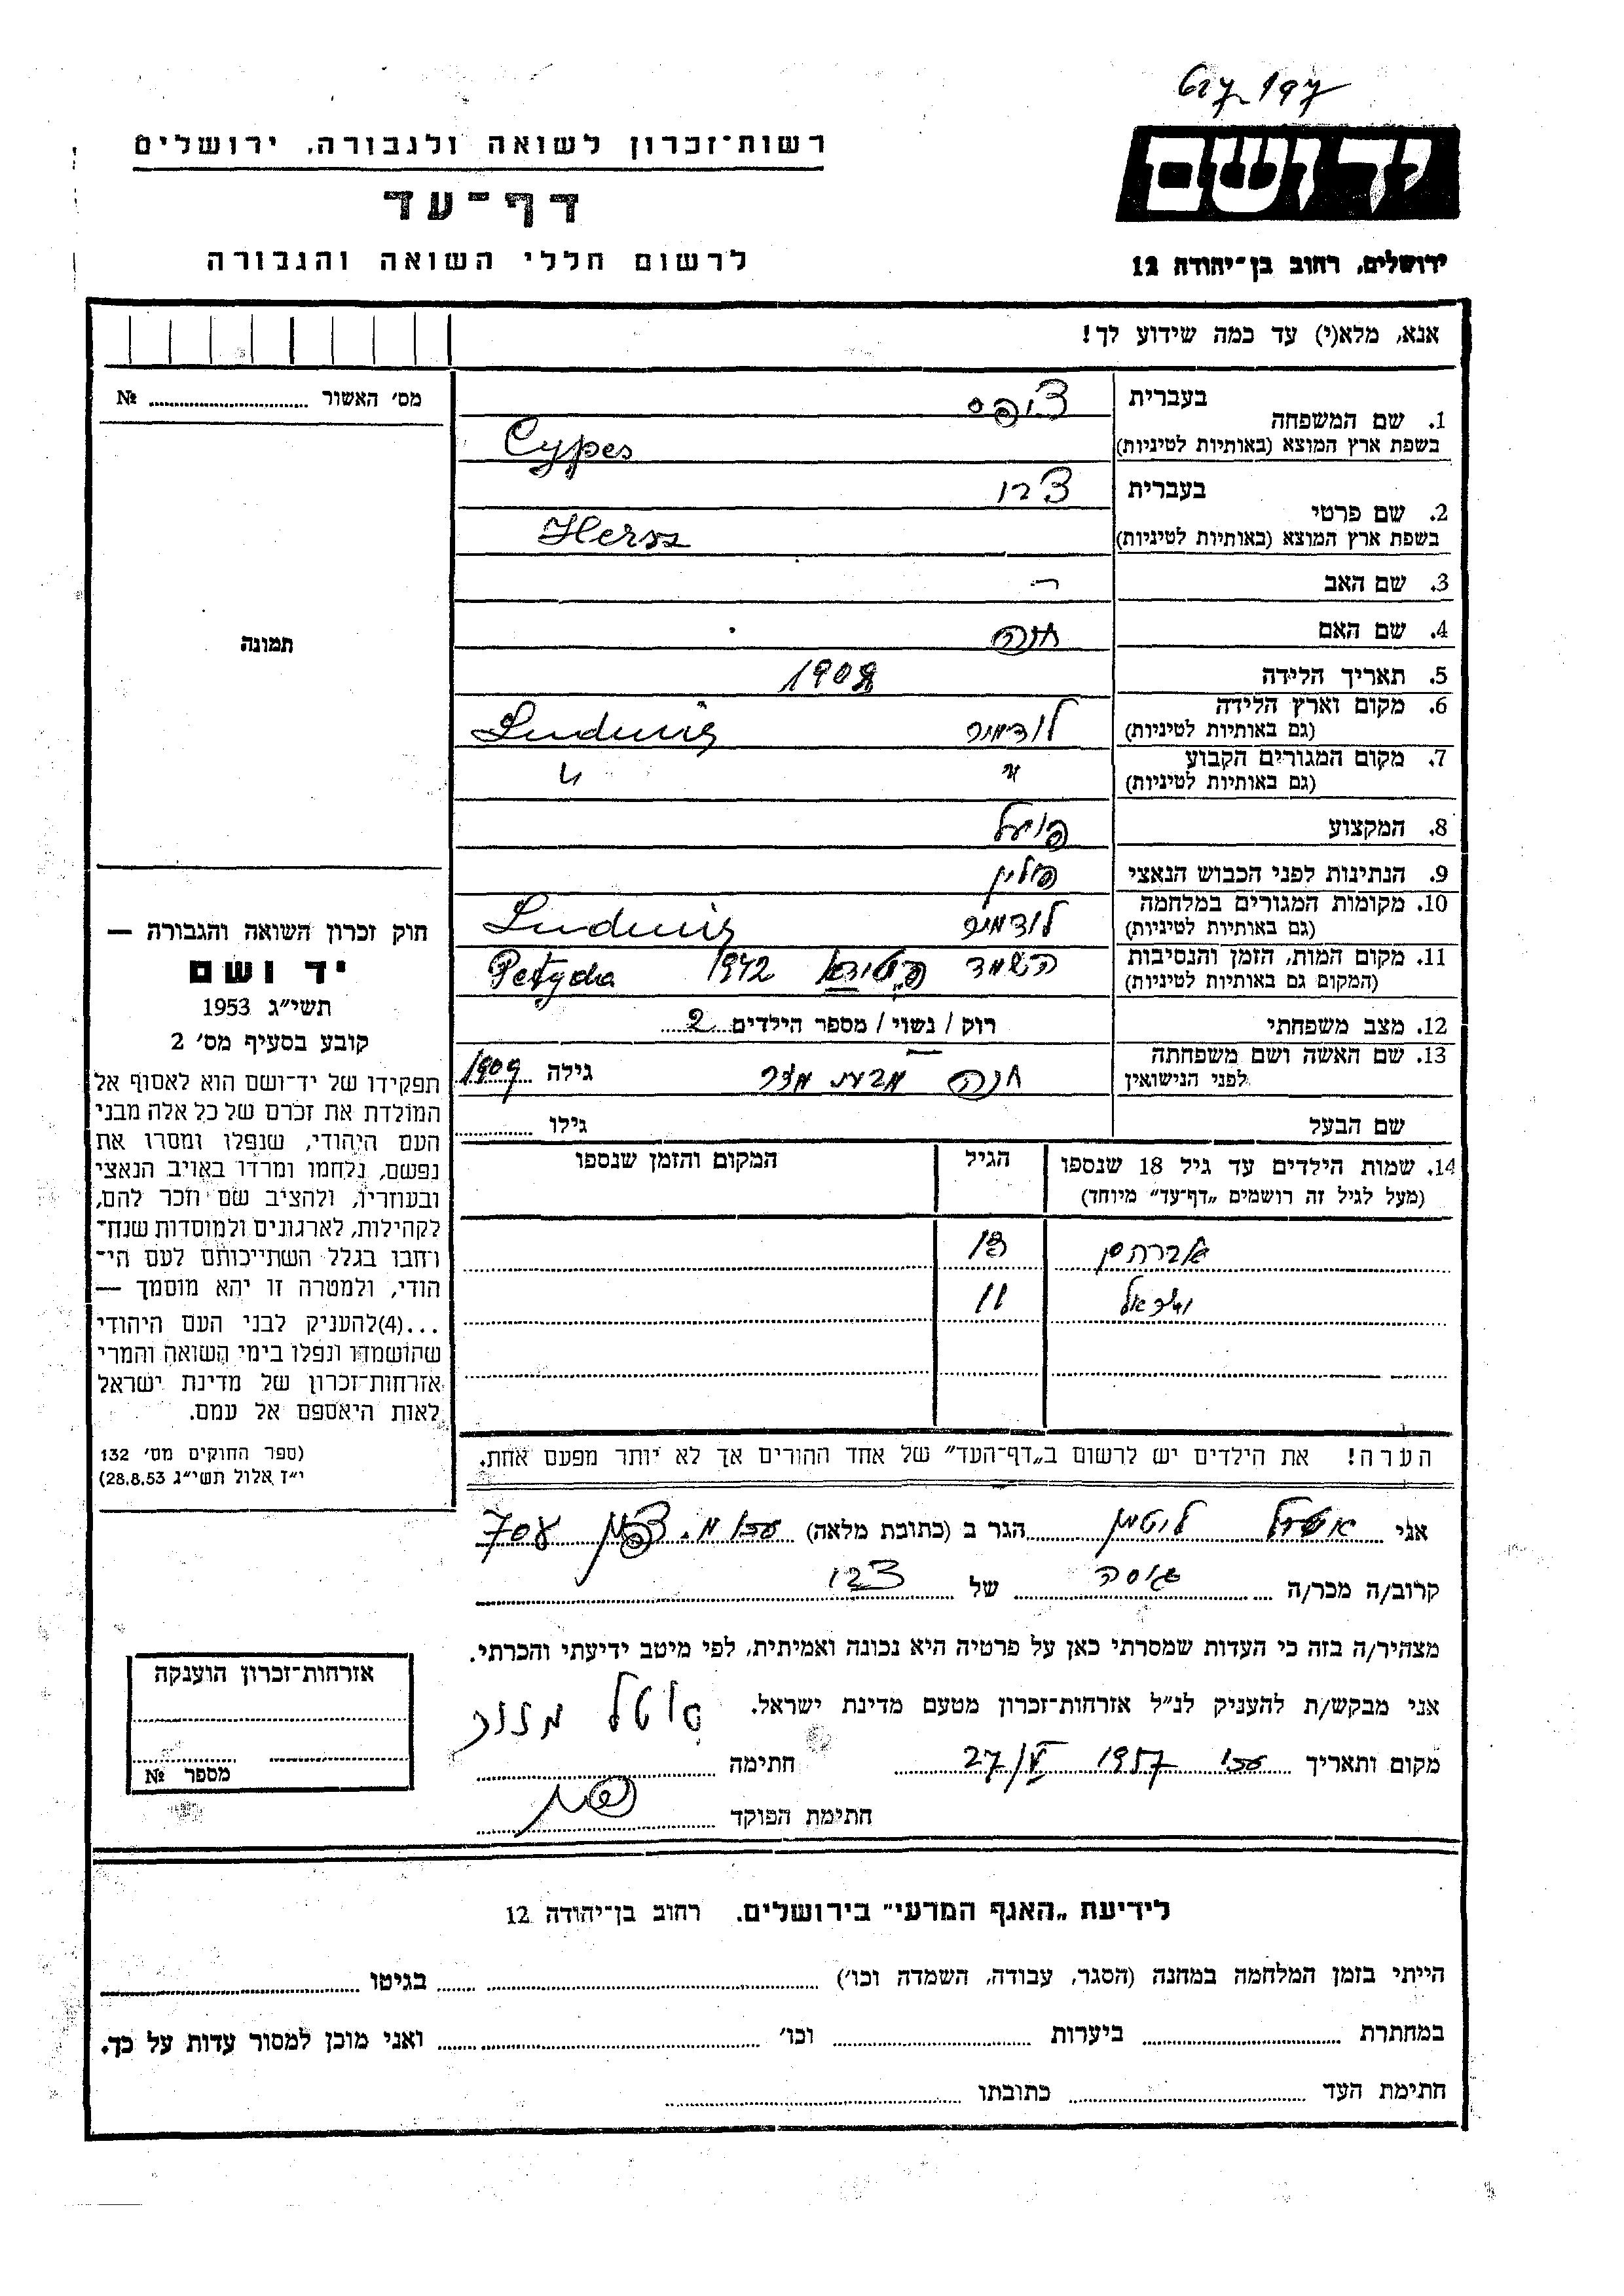 רשות־זכרון לשואה ולגבורה, ירושלים
דף־עד
לרשום חללי השואה והגבורה
ידושם
ירושלים, רחוב בן־יהודה 12
אנא, מלא(י) עד כמה שידוע לך!
מס׳ האשור № 
תמונה
חוק זכרון השואה והגבורה —
יד ושם
תשי״ג 1953
קובע בסעיף מס׳ 2
תפקידו של יד־ושם הוא לאסוף אל
המולדת את זכרם של כל אלה מבני
העם היהודי, שנפלו ומסרו את
נפשם, נלחמו ומרדו באויב הנאצי
ובעוזריו, ולהציב שם וזכר להם,
לקהילות, לארגונים ולמוסדות שנח־
רחבו בגלל השתייכותם לעם הי־
הודי, ולמטרה זו יהא מוסמך —
...(4)להעניק לבני העם היהודי
שהושמדו ונפלו בימי השואה והמרי
אזרחות־זכרון של מדינת ישראל
לאות היאספם אל עמם.
(ספר החוקים מס׳ 132
י״ז אלול תשי״ג 28.8.53)
בעברית ציפס
1. שם המשפחה
בשפת ארץ המוצא (באותיות לטיניות) Cypes
בעברית
2. שם פרטי
בשפת ארץ המוצא (באותיות לטיניות) Hersz
3. שם האב
4. שם האם חנה
5. תאריך הלידה 1908
6. מקום וארץ הלידה
(גם באותיות לטיניות) לודמיר Ludmir
7. מקום המגורים הקבוע
(גם באותיות לטיניות) " "
8. המקצוע פועל
9. הנתינות לפני הכבוש הנאצי פולין
10. מקומות המגורים במלחמה
(גם באותיות לטיניות) לודמיר Ludmir
11. מקום המות, הזמן והנסיבות
(המקום גם באותיות לטיניות) 1942 Petyda
12. מצב משפחתי רוק / נשוי / מספר הילדים 2
13. שם האשה ושם משפחתה
לפני הנישואין חנה מבית גילה 1909
שם הבעל גילו
14. שמות הילדים עד גיל 18 שנספו הגיל המקום והזמן שנספו
(מעל לגיל זה רושמים „דף־עד״ מיוחד)
אברהם 13
ישראל 11
הערה! את הילדים יש לרשום ב„דף־העד״ של אחד ההורים אך לא יותר מפעם אחת.
אני לוטמן הגר ב (כתובת מלאה) עכו
קרוב/ה מכר/ה גיסה של
מצהיר/ה בזה כי העדות שמסרתי כאן על פרטיה היא נכונה ואמיתית, לפי מיטב ידיעתי והכרתי.
אני מבקש/ת להעניק לנ״ל אזרחות־זכרון מטעם מדינת ישראל.
מקום ותאריך עכו 27/V 1957 חתימה
חתימת הפוקד
אזרחות־זכרון הוענקה
מספר №
לידיעת „האגף המדעי״ בירושלים. רחוב בן־יהודה 12
הייתי בזמן המלחמה במחנה (הסגר, עבודה, השמדה וכו׳) בגיטו
במחתרת ביערות וכו׳ ואני מוכן למסור עדות על כך.
חתימת העד כתובתו